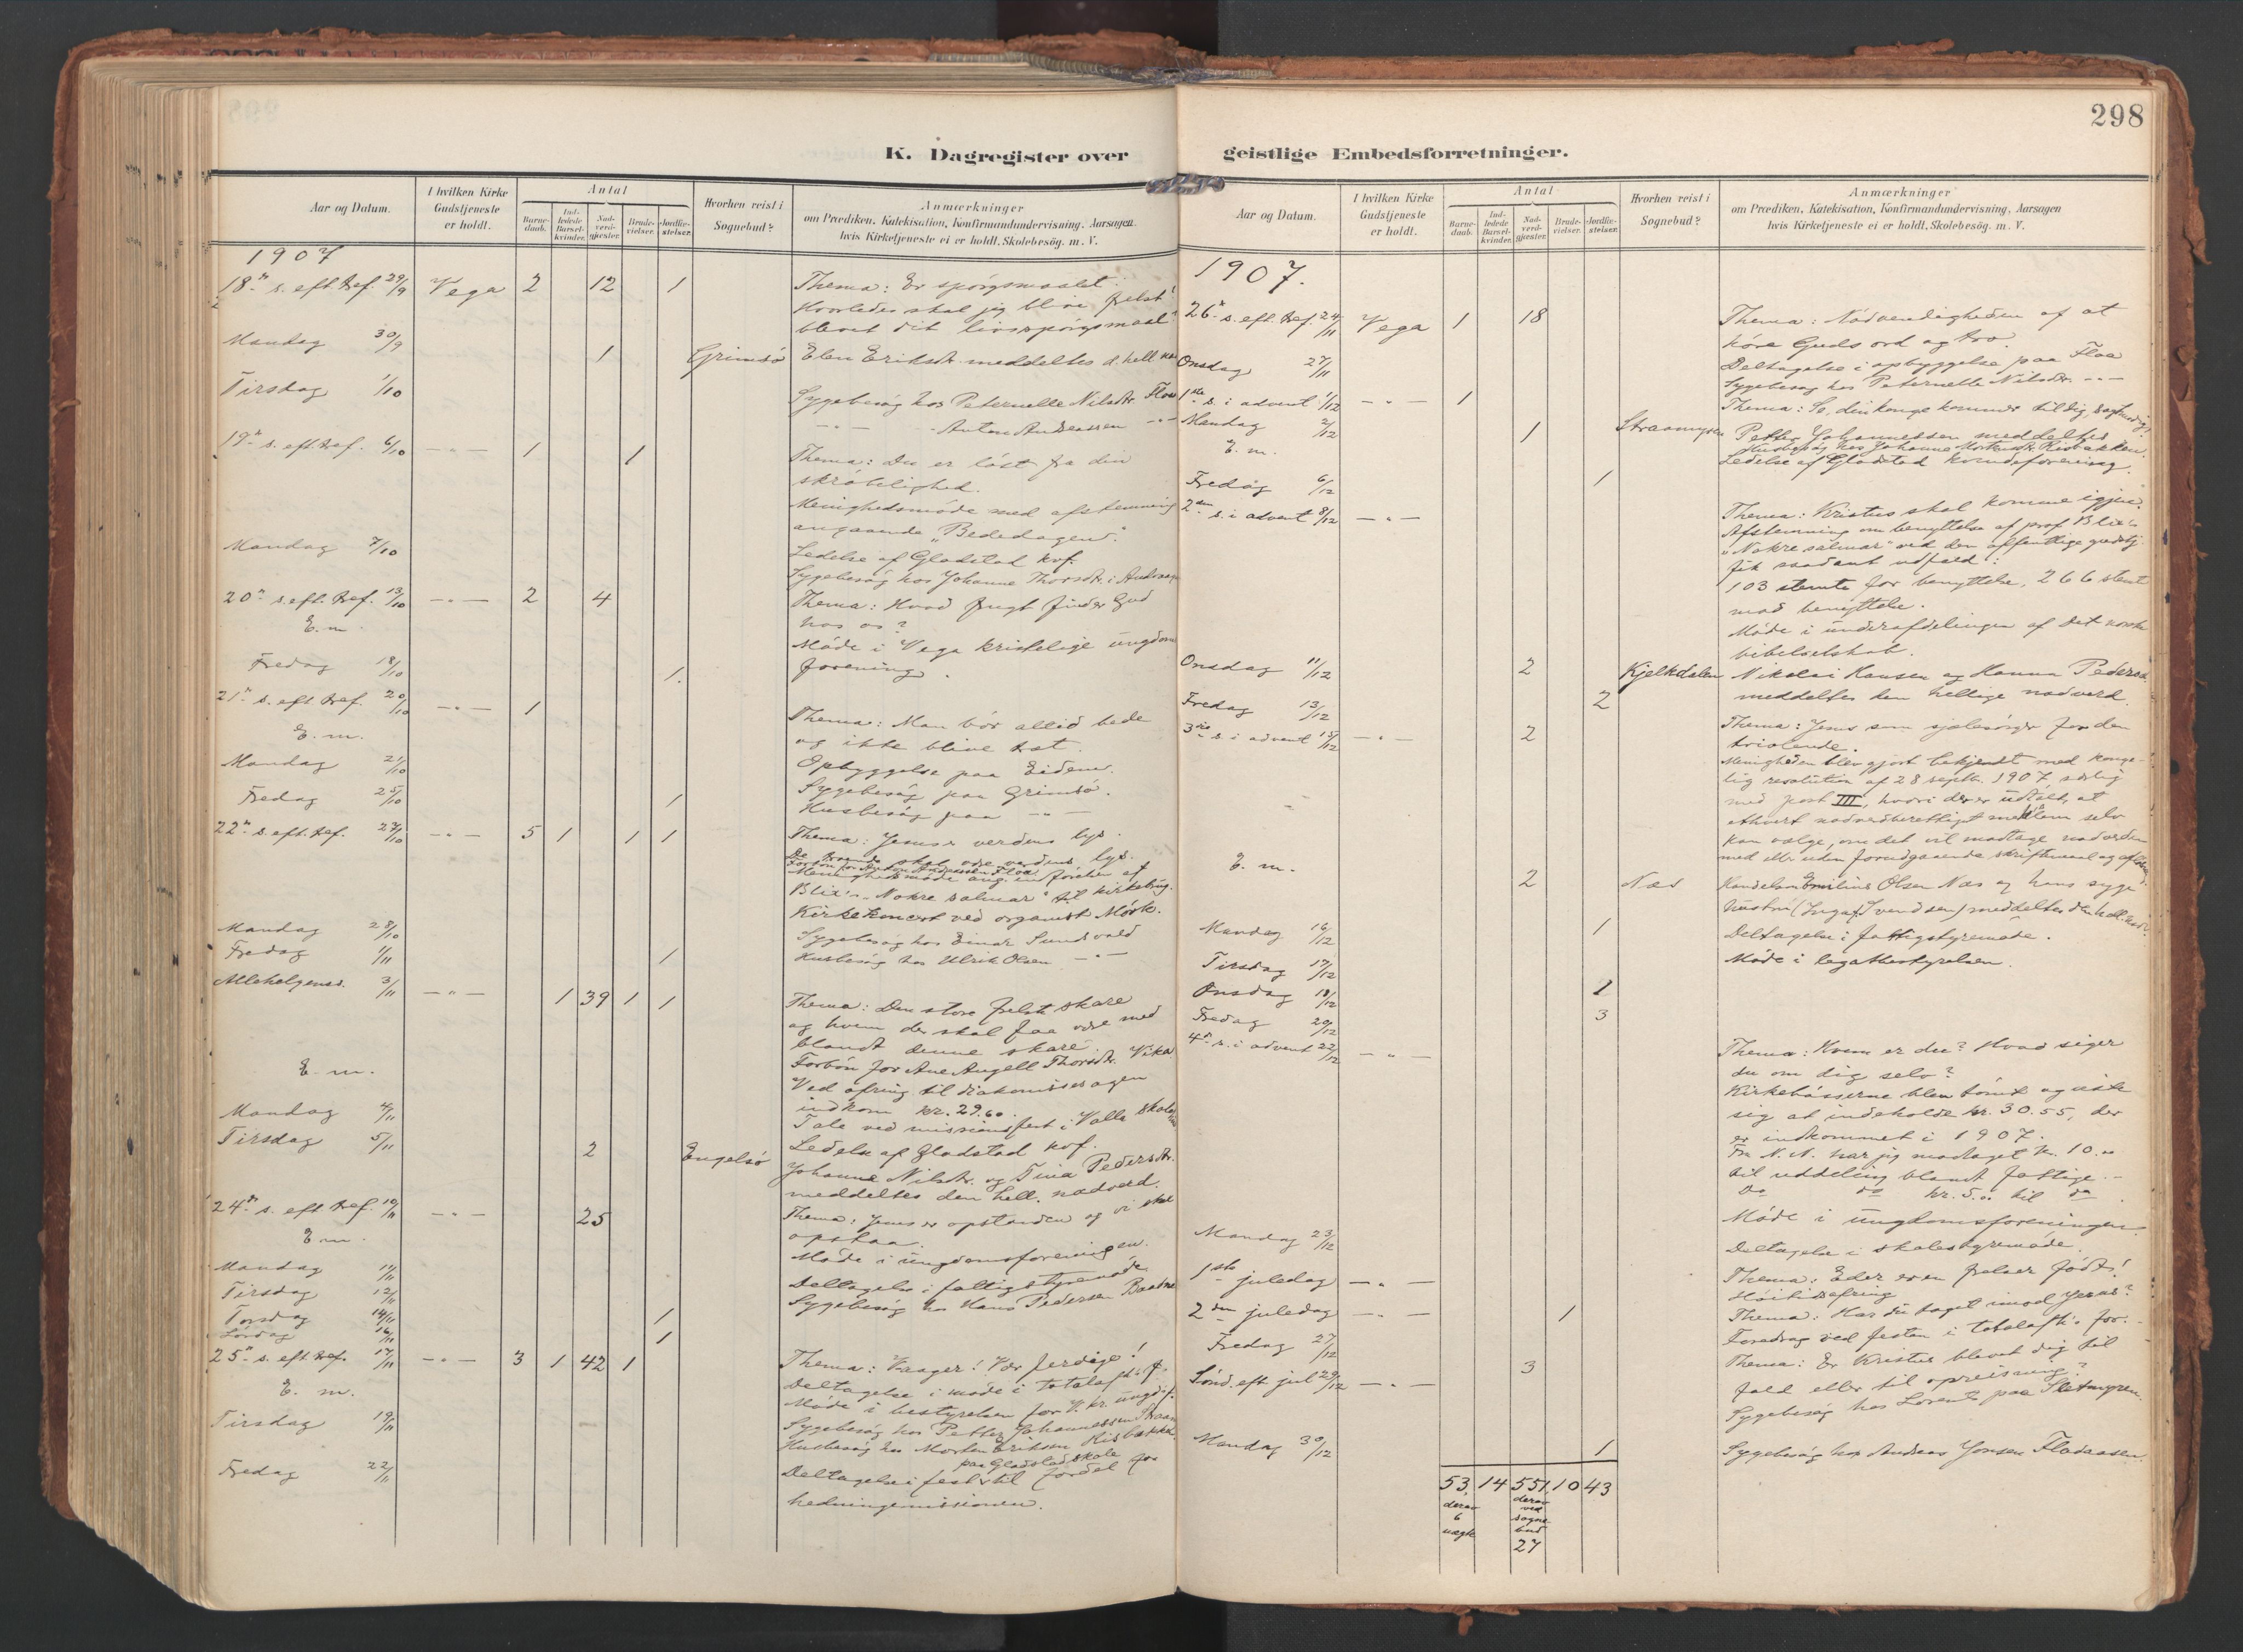 298
K. Dagregister over
Aar og Datum.
I hvilken Kirke Gudstjeneste er holdt.
Antal
Barne-daab.
Ind-ledede Barsel-kvinder.
Nad-verd-gjæster.
Brude-vielser.
Jordfæ-stelser.
Hvorhen reist i Sognebud?
Anmærkninger
om Prædiken, Katekisation, Konfirmandundervisning, Aarsagen
hvis Kirketjeneste ei er holdt, Skolebesög. m. V.
1907
18n s. eft. tref. 29/9 Vega 2 12 1 Thema: Er spörgsmaalet:
Hvorledes skal jeg blive frelst?
blevet dit livsspörgsmaal?
Mandag 30/9 1 Grimsö Elen Eriksdtr. meddeltes d. hell.
Tirsdag 1/10 Sygebesög hos Peternelle Nilsdtr. Floa
— " — Anton Andreassen — " —
19n s. eft. tref. 6/10 — " — 1 1 Thema: Du er löst fra din
skröbelighed.
Menighedsmöde med afstemning
angaaende "Bededagen".
Mandag 7/10 Ledelse af Gladstad kvf.
Sygebesög hos Johanne Thorsdtr. i
20n s. eft. tref. 13/10 — " — 2 4 Thema: Hvad frugt finder Gud
hos os?
E. m. Möde i Vega kristelige ungdoms
forening.
Fredag 18/10 1.
21n s. eft. tref. 20/10 — " — 1 Thema: Man bör altid bede
og ikke blive træt.
E. m. Opbyggelse paa Eidem.
Mandag 21/10 Sygebesög paa Grimsö.
Fredag 25/10 1 Husbesög paa — " —
22n s. eft. tref. 27/10 — " — 5 1 1 1 Thema: Jesus verdens lys.
De troende skal være verdens lys.
Forbön for Anton Andreassen Floa
Menighedsmöde ang. indförelse af
Blix's "Nokre salmar" til kirkebrug.
Kirkekoncert ved organist Mörk.
Mandag 28/10 Sygebesög hos Einar Sundsvold
Fredag 1/11 1 Husbesög hos Ulrik Olsen — " —
Allehelgensd. 3/11 — " — 1 39 1 1 Thema: Den store frelste skare
og hvem der skal faa være med
blandt denne skare.
Forbön for Ane Angell Thorsdtr. Vika
Ved ofring til diakonissesagen
indkom kr. 29.60.
E. m. Tale ved missionsfest i Valla skole
Mandag 4/11 Ledelse af Gladstad kvf.
Tirsdag 5/11 2 Engelsö Johanne Nilsdtr. og Tina Pedersdtr.
meddeltes den hell. nadverd.
24n s. eft. tref. 10/11 — " — 25 Thema: Jesus er opstanden og vi skal
opstaa.
E. m. Möde i ungdomsforeningen.
Mandag 11/11 Deltagelse i fattigstyremöde
Tirsdag 12/11 Sygebesög hos Hans Pedersen
Torsdag 14/11 1
Lördag 16/11 1
25n s. eft. tref. 17/11 — " — 3 1 42 1 Thema: Vaager! Vær færdige!
E. m. Deltagelse i möde i totalafh.
Möde i bestyrelsen for V. kr. ungd.f.
Tirsdag 19/11 Sygebesög hos Petter Johannessen
Husbesög hos Morten Eriksen Risbakken
Fredag 22/11 paa Gladstad skole
Deltagelse i fest til fordel for
hedningemissionen.
geistlige Embedsforretninger.
Aar og Datum.
I hvilken Kirke Gudstjeneste er holdt.
Antal
Barne-daab.
Ind-ledede Barsel-kvinder.
Nad-verd-gjæster.
Brude-vielser.
Jordfæ-stelser.
Hvorhen reist i Sognebud?
Anmærkninger
om Prædiken, Katekisation, Konfirmandundervisning, Aarsagen
hvis Kirketjeneste ei er holdt, Skolebesög. m. V.
1907.
26n s. eft. tref. 24/11 Vega 1 18 Thema: Nödvendigheden af at
höre Guds ord og tro.
Onsdag 27/11 Deltagelse i opbyggelse paa Floa
Sygebesög hos Peternelle Nilsdtr. — " —
1ste s. i advent 1/12 — " — 1 Thema: Se, din konge kommer til dig, sagtmodig.
Mandag 2/12 1 Straumyren Petter Johannessen meddeltes
Husbesög hos Johanne Mortensdtr. Risbakken.
E. m. Ledelse af Gladstad kvindeforening.
Fredag 6/12 1
2den s. i advent 8/12 — " — Thema: Kristus skal komme igjen.
Afstemning om benyttelse af prof. Blix's
"Nokre salmar" ved den offentlige gudstj.
fik saadant udfald:
103 stemte for benyttelse, 266 stemt
mod benyttelse.
Möde i underafdelingen af det norske
bibelselskab.
Onsdag 11/12 2 Kjelkdalen Nikolai Hansen og Hanna Pedersd.
meddeltes den hellige nadverd.
Fredag 13/12 2
3die s. i advent 15/12 — " — 2 Thema: Jesus som sjælesörger for den
tvivlende.
Menigheden blev gjort bekjendt med konge-
lig resolution af 28 septbr. 1907 særlig
med post III, hvori der er udtalt, at
ethvert nadverdberettiget medlem selv
kan vælge, om det vil modtage nadverden
med eller uden forudgaaende skriftemaal og
E. m. 2 Næs Handelsm. Emilius Olsen Næs og hans syge
hustru (Inga Svendsen) meddeltes den hell. nadv.
Mandag 16/12 1 Deltagelse i fattigstyremöde.
Tirsdag 17/12 Möde i legatbestyrelsen.
Onsdag 18/12 1
Fredag 20/12 3
4de s. i advent 22/12 — " — Thema: Hvem er du? Hvad siger
du om dig selv?
Kirkebösserne blev tömt og viste
sig at indeholde kr. 30.55, der
er indkommet i 1907.
Fra N. N. har jeg modtaget kr. 10.00
til uddeling blandt fattige.—
Do do kr. 5.00 til do
Möde i ungdomsforeningen.
Mandag 23/12 Deltagelse i skolestyremöde.
1ste juledag — " — Thema: Eder er en frelser födt!
Höitidsofring
2den juledag — " — 1 Thema: Har du taget imod Jesus?
Fredag 27/12 Foredrag ved festen i totalafh. for.
Sönd. eft. jul 29/12 — " — 3 Thema: Er Kristus blevet dig til
fald eller til opreisning?
Sygebesög hos Lorents paa Sletmyren.
Mandag 30/12 1 Sygebesög hos Andreas Jonsen Fladaasen.
53, 14 551, 10 43
derav 6 uægte
derav ved sognebud 27